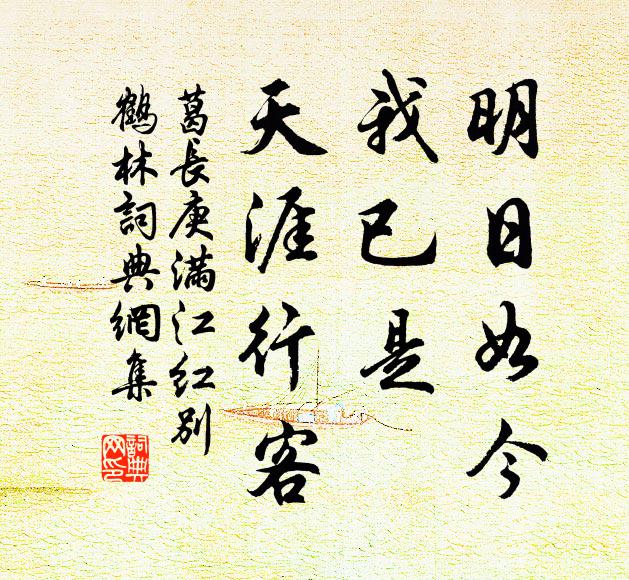 明日如今
我已是
天涯行客
葛長庚滿江紅別
鶴林詞典網集
詞典網印